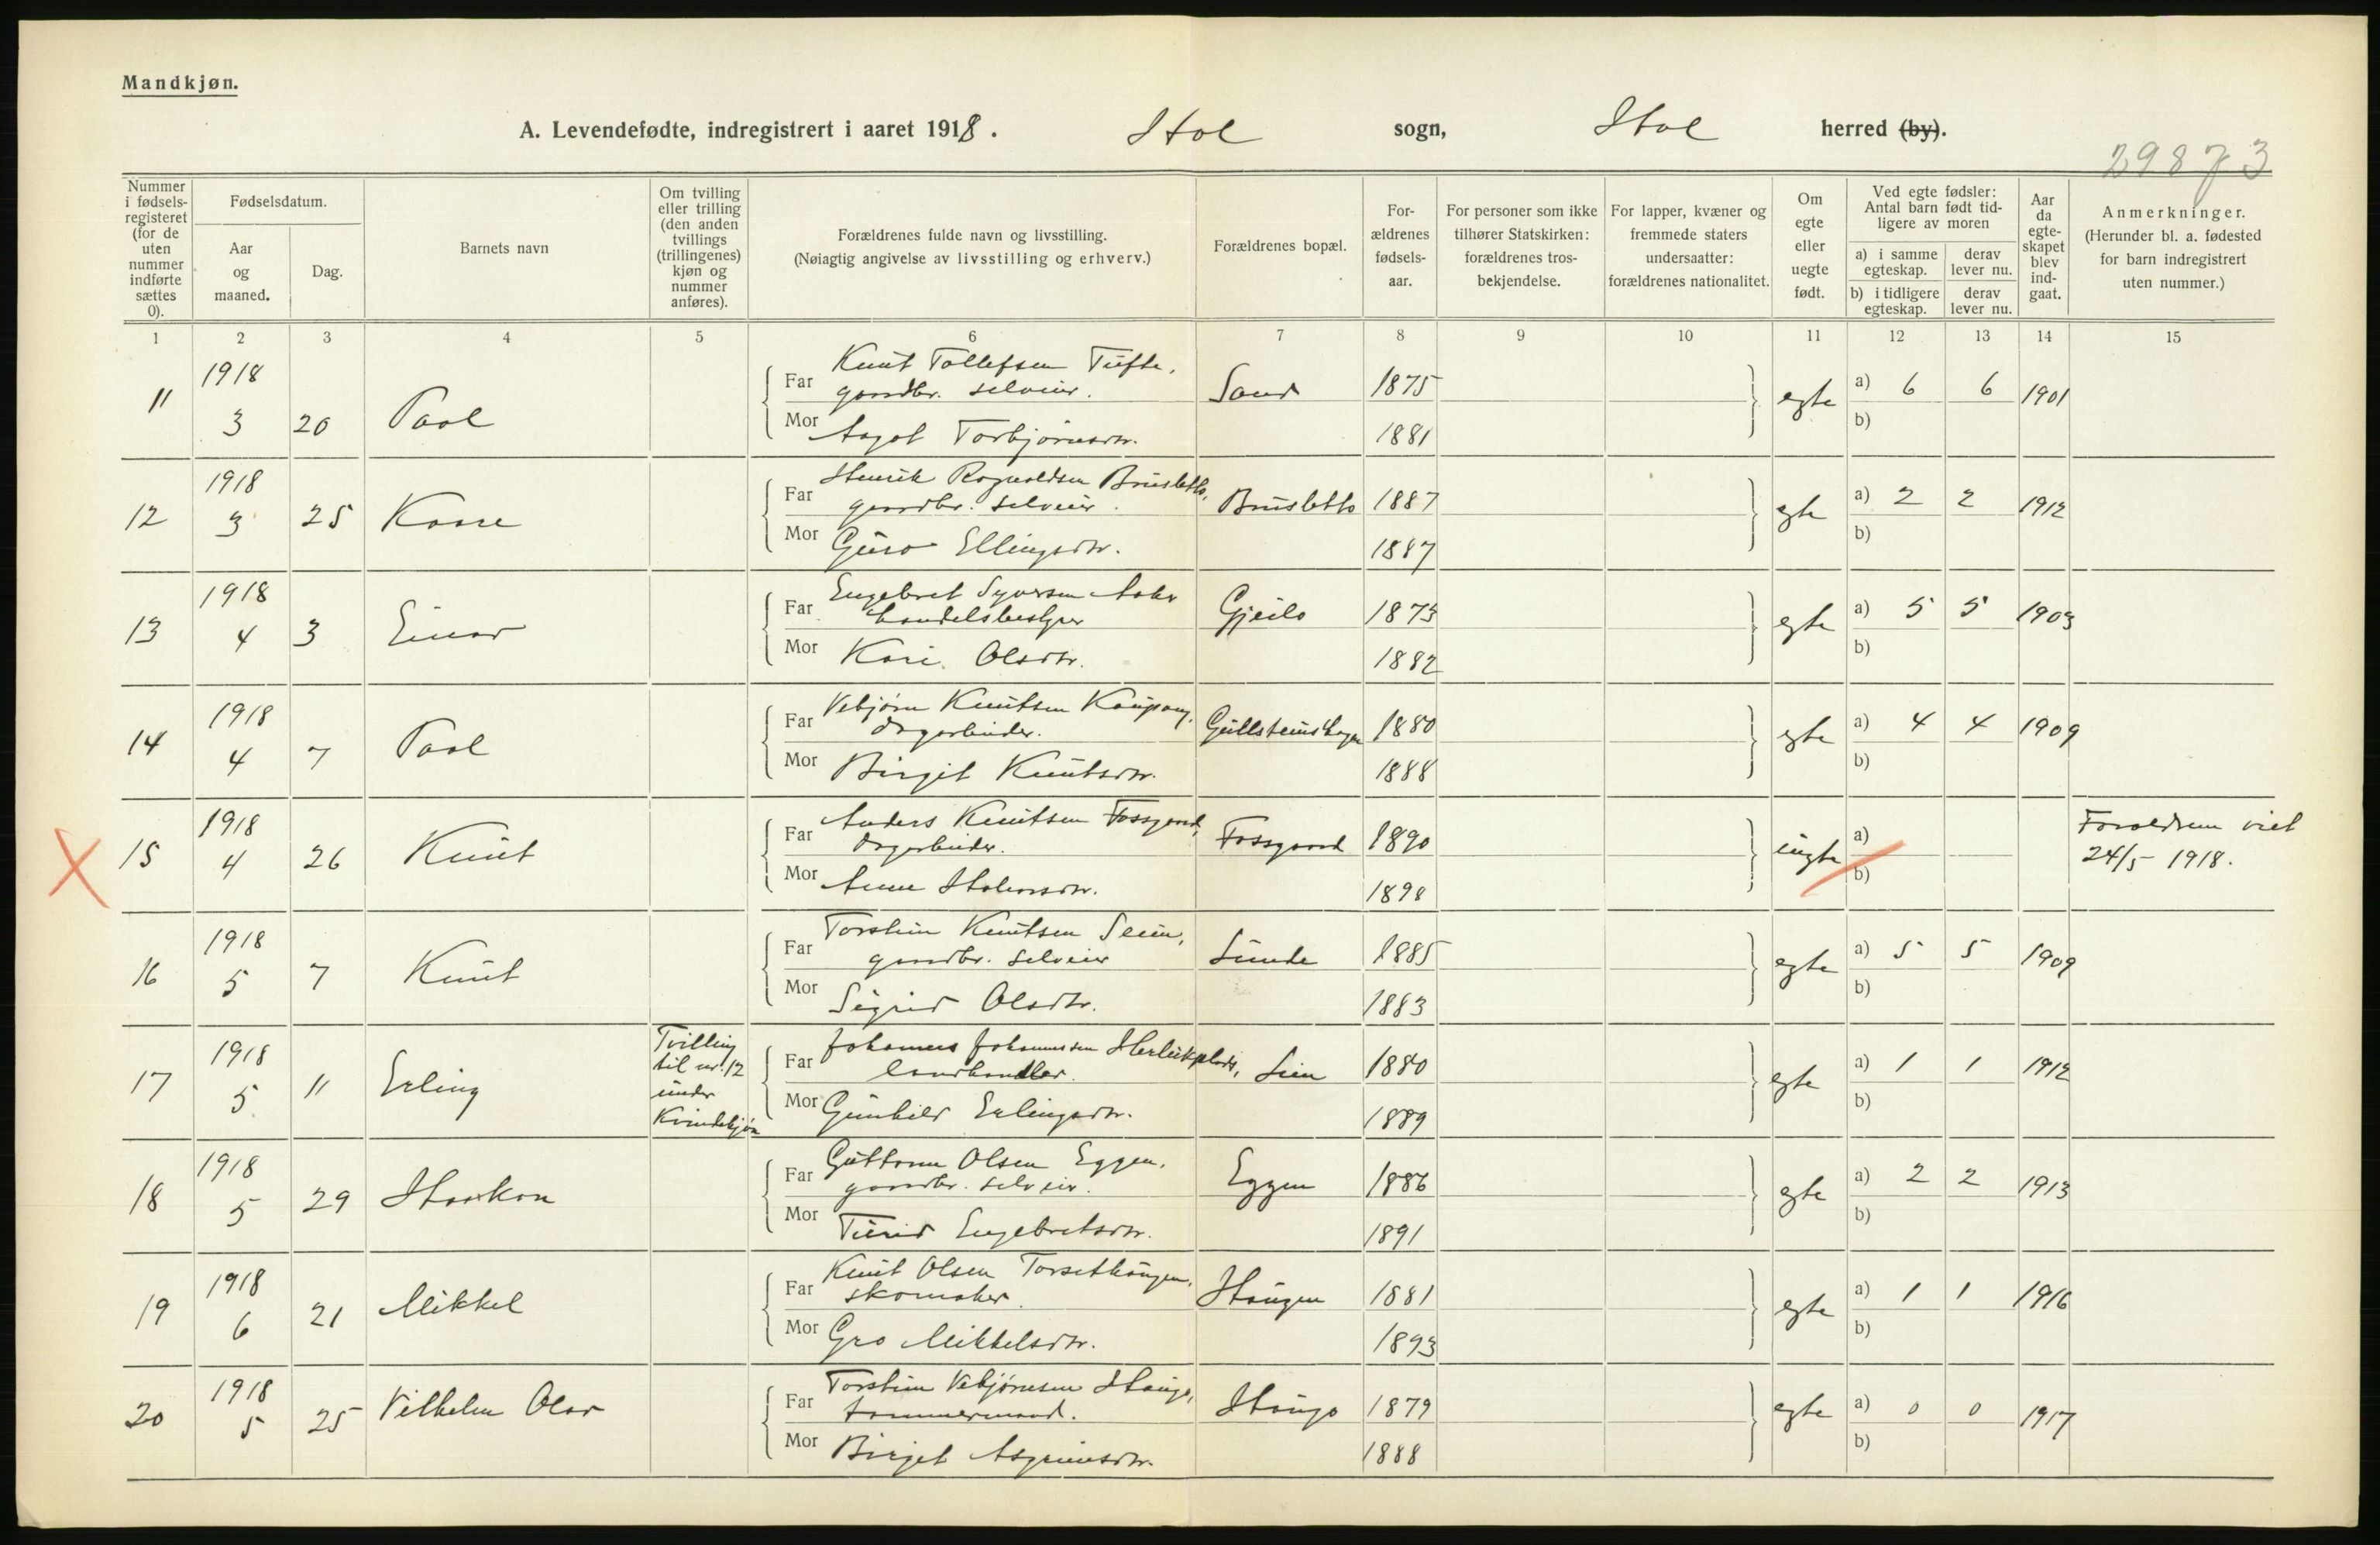 Mandkjøn.
A. Levendefødte, indregistrert i aaret 1918. Hol sogn, Hol herred (by).
29873
Nummer i fødsels-registeret (for de uten nummer indførte sættes 0).
Fødselsdatum.
Aar og maaned.
Dag.
Barnets navn
Om tvilling eller trilling (den anden tvillings (trillingenes) kjøn og nummer anføres).
Forældrenes fulde navn og livsstilling.
(Nøiagtig angivelse av livsstilling og erhverv.)
Forældrenes bopæl.
For-ældrenes fødsels-aar.
For personer som ikke tilhører Statskirken: forældrenes tros-bekjendelse.
For lapper, kvæner og fremmede staters undersaatter: forældrenes nationalitet.
Om egte eller uegte født.
Ved egte fødsler: Antal barn født tid-ligere av moren
a) i samme egteskap. derav lever nu.
b) i tidligere egteskap. derav lever nu.
Aar da egte-skapet blev ind-gaat.
Anmerkninger.
(Herunder bl. a. fødested for barn indregistrert uten nummer.)
1 2 3 4 5 6 7 8 9 10 11 12 13 14 15
11 1918 3 20 Paal
Far Knut Tollefsen Tufte, gaardbr. selveier. Sand 1875 egte a) 6 6 1901
Mor Aagot Torbjørnsdtr. 1881 b)
12 1918 3 25 Kaare
Far Henrik Ragnvaldsen Brusletto, gaardbr. selveier. Brusletto 1887 egte a) 2 2 1912
Mor Guro Ellingsdtr. 1887 b)
13 1918 4 3 Einar
Far Engebret Syversen Aaker handelsbestyrer Gjeilo 1873 egte a) 5 5 1903
Mor Kari Olsdtr. 1882 b)
14 1918 4 7 Paal
Far Vebjørn Knutsen Kaupang, dagarbeider. Gullsteinshagen 1880 egte a) 4 4 1909
Mor Birgit Knutsdtr. 1888 b)
15 1918 4 26 Knut
Far Anders Knutsen Fossgaard, dagarbeider. Fossgaard 1890 uegte a) Foreldrene viet
24/5 1918.
Mor Anne Halvorsdtr. 1898 b)
16 1918 5 7 Knut
Far Torstein Knutsen Seim, gaardbr. selveier Sunde 1885 egte a) 5 5 1909
Mor Sigrid Olsdtr. 1883 b)
17 1918 5 11 Erling Tvilling til nr. 12 under Kvindekjøn
Far Johannes Johannessen Herleiksplads, landhandler. Lien 1880 egte a) 1 1 1912
Mor Gunhild Erlingsdtr. 1889 b)
18 1918 5 29 Haakon
Far Guttorm Olsen Eggen, gaardbr. selveier. Eggen 1886 egte a) 2 2 1913
Mor Turid Engebretsdtr. 1891 b)
19 1918 6 21 Mikkel
Far Knut Olsen Torsethaugen, skomaker. Haugen 1881 egte a) 1 1 1916
Mor Gro Mikkelsdtr. 1893 b)
20 1918 5 25 Vilhelm Olav
Far Torstein Vebjørnsen Haugo, tømmermand. Haugo 1879 egte a) 0 0 1917
Mor Birget Asgrimsdtr. 1888 b)